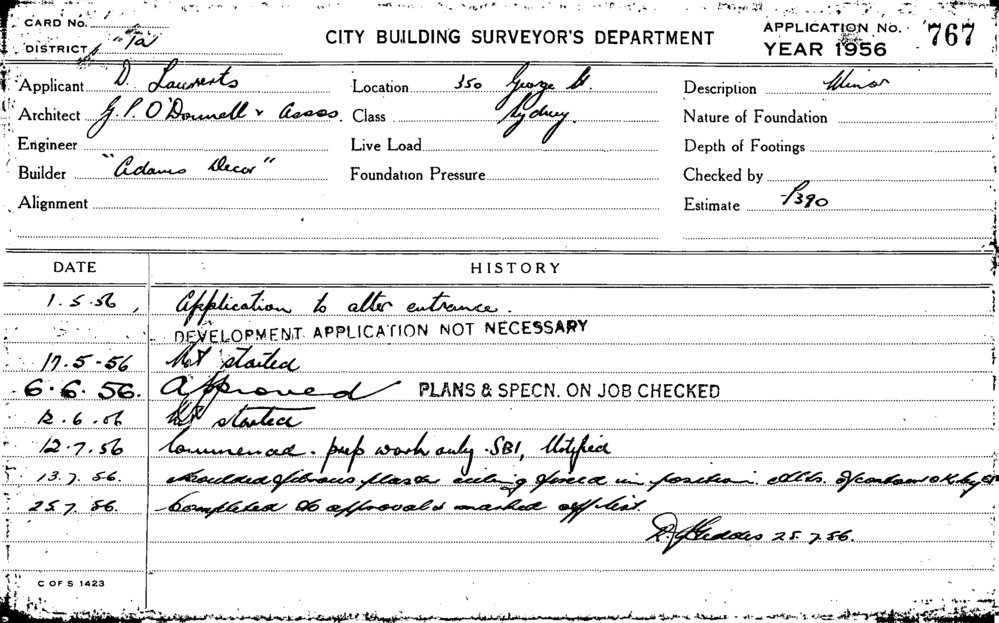 CARD No.
DISTRICT 7a
CITY BUILDING SURVEYOR'S DEPARTMENT
APPLICATION No. 767
YEAR 1956
Applicant D. Laurents
Location 350 George St.
Description Minor
Architect G. P. O'Donnell & Assos.
Class Sydney.
Nature of Foundation
Engineer
Live Load
Depth of Footings
Builder "Adams Decor"
Foundation Pressure
Checked by
Alignment
Estimate £390
DATE HISTORY
1.5.56 Application to alter entrance.
DEVELOPMENT APPLICATION NOT NECESSARY
17.5.56 Not started
6.6.56. Approved PLANS & SPECN. ON JOB CHECKED
12.6.56 Not started
12.7.56 Commenced. prep work only. SBI, Notified
13.7.56. Moulded fibrous plaster ceiling fixed in position.
25.7.56. Completed to approval & marked off list.
D. Geddes 25.7.56.
C OF S 1423